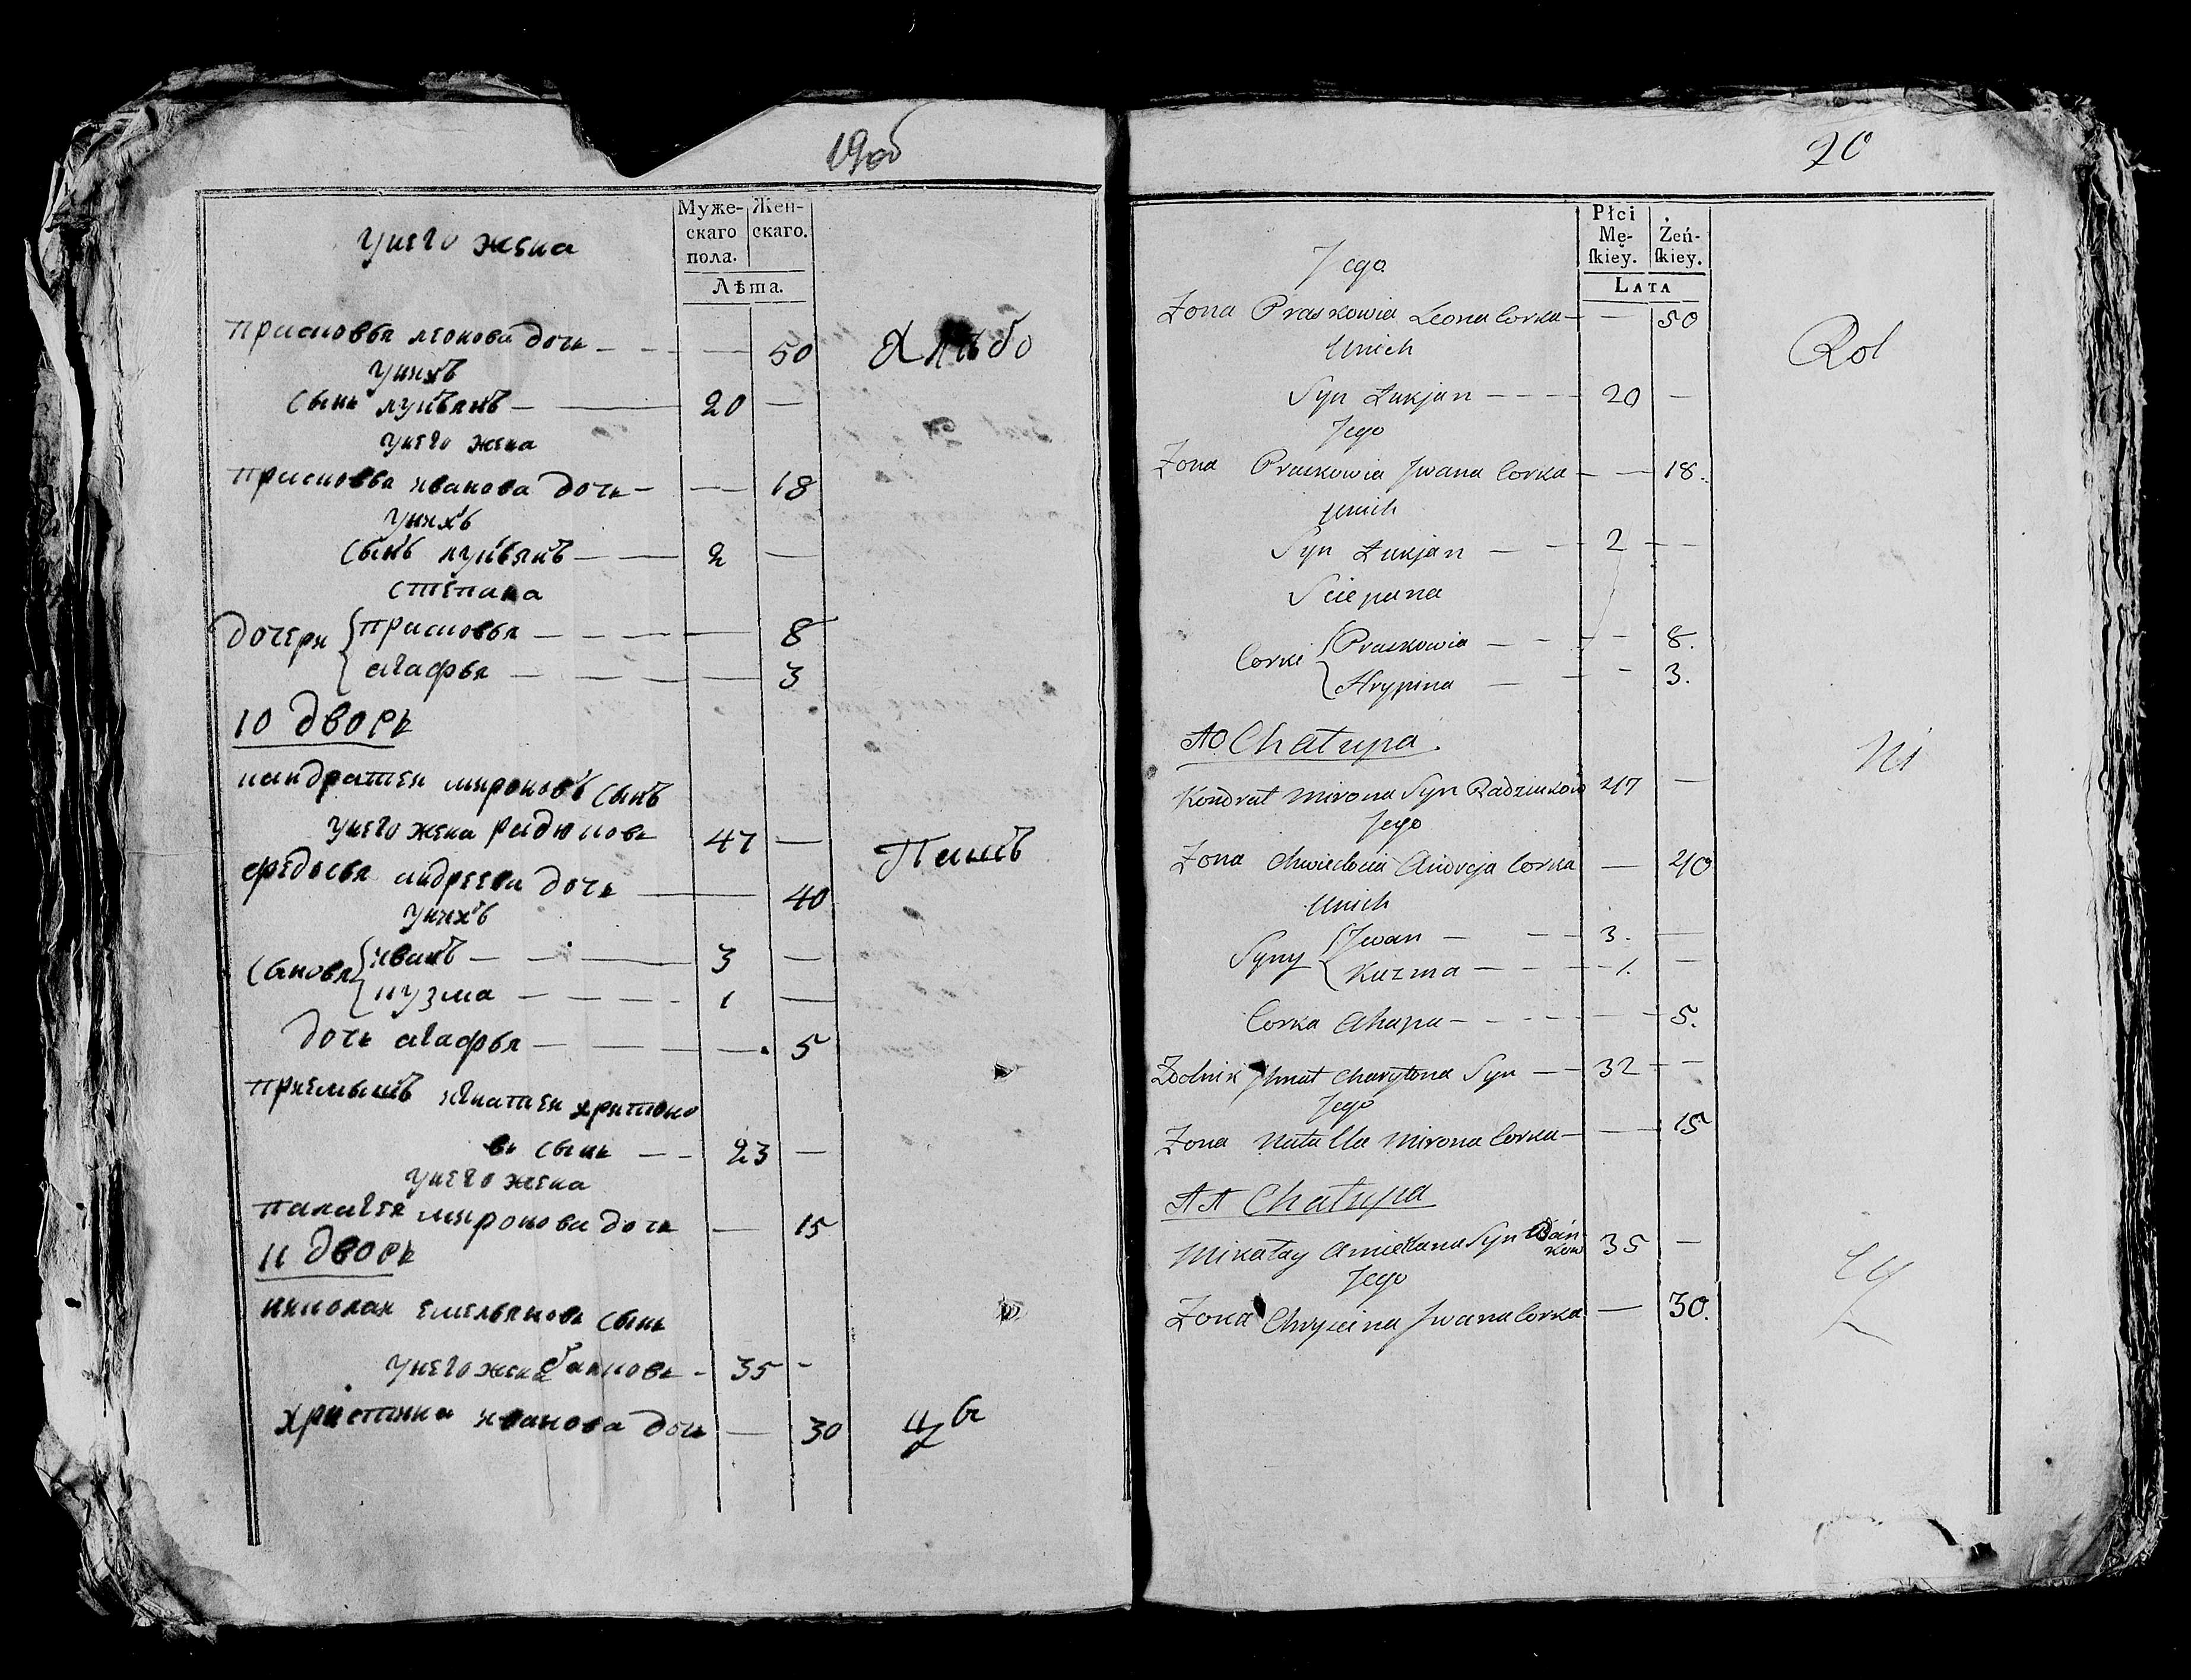 19об
Муже-
скаго
пола.
Жен-
скаго.
Лѣта.
унего жена
присковья леонова дочь 50
Хлѣбо
унихъ
сынъ лукьянъ 20
унего жена
присковья иванова дочь 18
унихъ
сынъ лукьянъ 2
степана
дочери присковья 8
агафья 3
10 дворъ
кандратеи мироновъ сынъ
унего жена радюковъ 47
Пашъ
федосья андреева дочь 40
унихъ
сыновья иванъ 3
кузма 1
дочь агафья 5
приемышъ игнатеи хритоно
въ сынъ 23
унего жена
палагея миронова дочь 15
11 дворъ
николаи емельяновъ сынъ
унего жена банковъ 35
христина иванова дочь 30
20
Płci
Mę-
ſkiey.
Żeń-
ſkiey.
Lata
Jego
Zona Praskowia Leona Corka 50
Rol
Unich
Syn Łukjan 20
Jego
Zona Praskowia Jwana Corka 18.
Unich
Syn Łukjan 2
Sciepana
Corki Praskowia 8.
Hrypina 3.
10 Chałupa.
Ni
Kondrat Mirona Syn Radziukow 47
Jego
Zona Chwiedosia Andreja Corka 40
Unich
Syny Jwan 3.
Kuzma 1.
Corka Ahapa 5.
Hnat Charytona Syn 32
Jego
Zona Natalla Mirona Corka 15
11 Chałupa
Mikałay Amiellana Syn Bań-
kow 35
Jego
Zona Chryscina Jwana Corka 30.